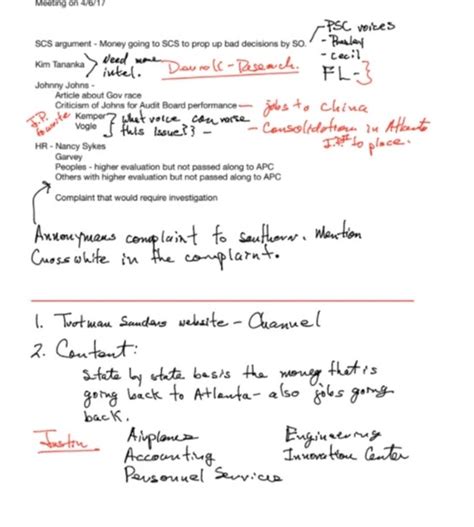 Meeting on 4/6/17
PSC voices
SCS argument - Money going to SCS to prop up bad decisions by SO.
- Cecil
Kim Tananka
Need more
intel.
- Research.
FL -
Johnny Johns -
Article about Gov race
Criticism of Johns for Audit Board performance — jobs to China
J.P.
favorite
Kemper
Vogle
what voice can voice
this issue?? -
- Consolidation in Atlanta
to place.
HR - Nancy Sykes
Garvey
Peoples - higher evaluation but not passed along to APC
Others with higher evaluation but not passed along to APC
Complaint that would require investigation
Annonymans complaint to southern. Mention
Crosswhite in the complaint.
1. Trotman Sanders website - Channel
2. Content:
State by state basis the money that is
going back to Atlanta - also jobs going
back.
Justin
Airplanes
Engineering
Accounting
Innovation Center
Personnel Services